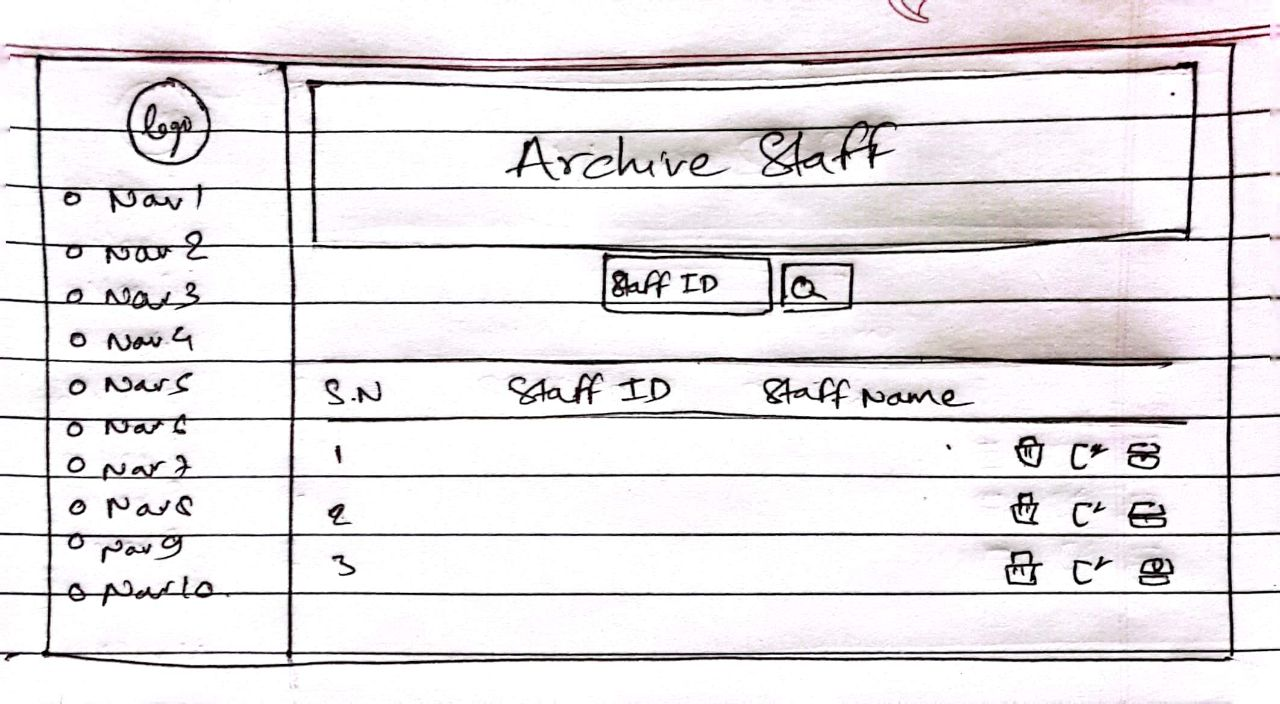 logo
Nav 1
Nav 2
Nav 3
Nav 4
Nav 5
Nav 6
Nav 7
Nav 8
Nav 9
Nav 10
Archive Staff
Staff ID
S.N Staff ID Staff Name
1
2
3